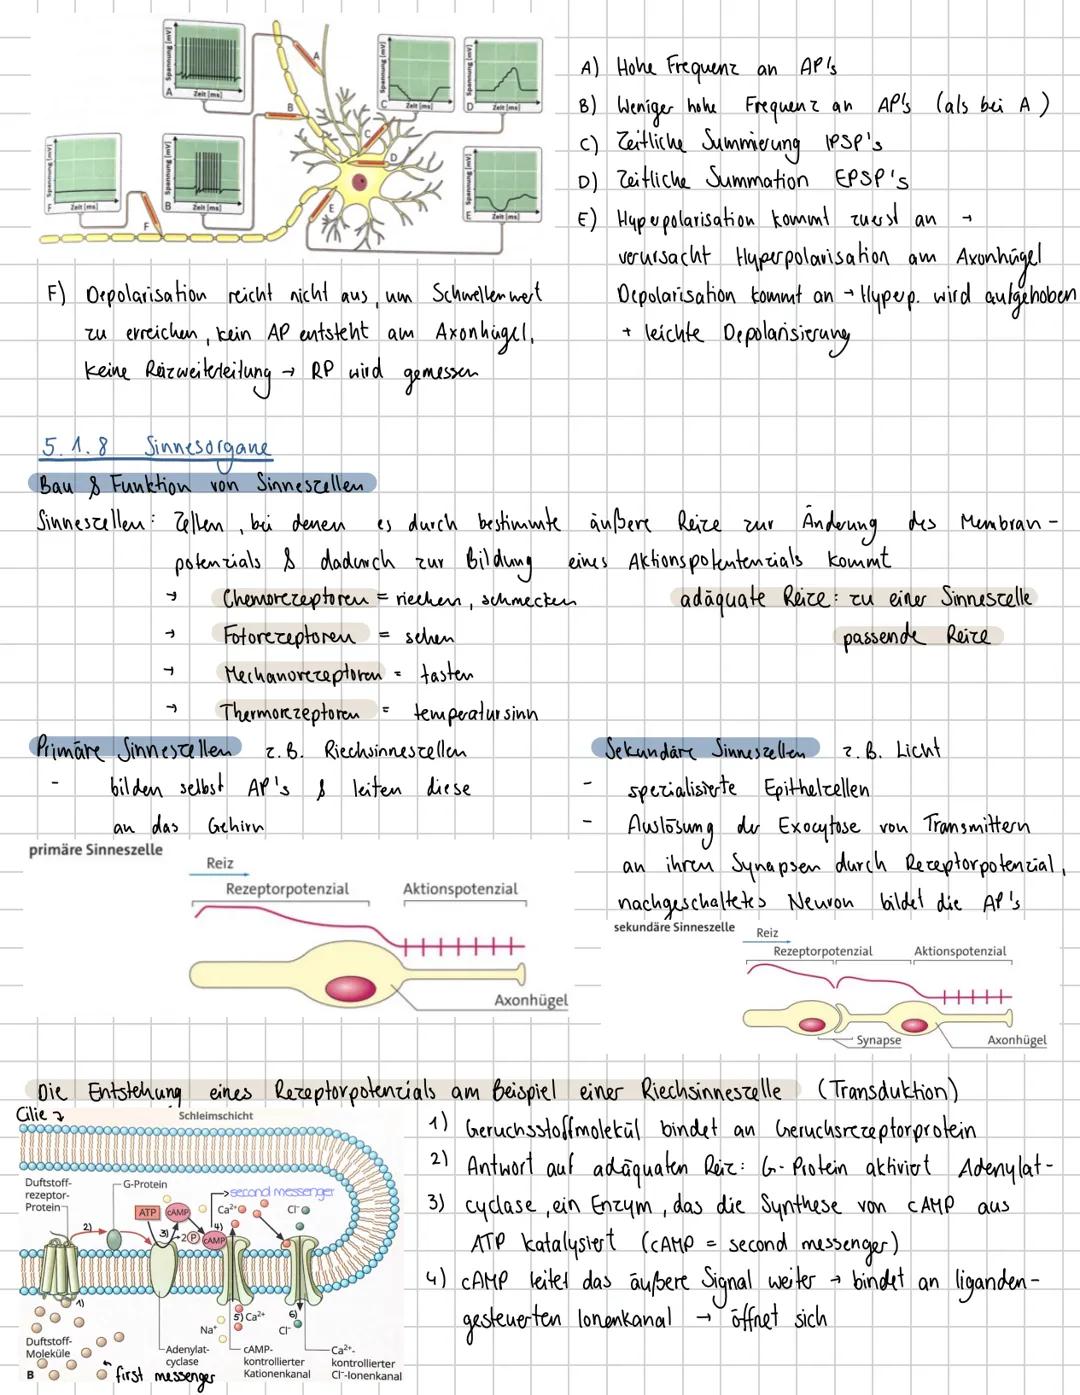 Spannung [mV]
A
Zeit [ms]
Spannung [mV]
C
Zeit [ms]
Spannung [mV]
D
Zeit [ms]
Spannung [mV]
F
Zeit [ms]
Spannung [mV]
B
Zeit [ms]
Spannung [mV]
E
Zeit [ms]
A
B
C
D
E
F
A) Hohe Frequenz an AP's
B) Weniger hohe Frequenz an AP's (als bei A)
C) Zeitliche Summierung IPSP's
D) Zeitliche Summation EPSP's
E) Hyperpolarisation kommt zuerst an →
verursacht Hyperpolarisation am Axonhügel
Depolarisation kommt an → Hyperp. wird aufgehoben
+ leichte Depolarisierung
F) Depolarisation reicht nicht aus, um Schwellenwert
zu erreichen, kein AP entsteht am Axonhügel,
keine Reizweiterleitung → RP wird gemessen
5.1.8 Sinnesorgane
Bau & Funktion von Sinneszellen
Sinneszellen: Zellen, bei denen es durch bestimmte äußere Reize zur Änderung des Membran-
potenzials & dadurch zur Bildung eines Aktionspotentenzials kommt
→ Chemorezeptoren = riechen, schmecken
adäquate Reize: zu einer Sinneszelle
passende Reize
→ Fotorezeptoren = sehen
→ Mechanorezeptoren = tasten
→ Thermorezeptoren = temperatursinn
Primäre Sinneszellen z.B. Riechsinneszellen
- bilden selbst AP's & leiten diese
an das Gehirn
primäre Sinneszelle
Reiz
Rezeptorpotenzial
Aktionspotenzial
Axonhügel
Sekundäre Sinneszellen z.B. Licht
- spezialisierte Epithelzellen
- Auslösung der Exocytose von Transmittern
an ihren Synapsen durch Rezeptorpotenzial,
nachgeschaltetes Neuron bildet die AP's
sekundäre Sinneszelle
Reiz
Rezeptorpotenzial
Aktionspotenzial
Synapse
Axonhügel
Die Entstehung eines Rezeptorpotenzials am Beispiel einer Riechsinneszelle (Transduktion)
Cilie
Schleimschicht
Duftstoff-
rezeptor-
Protein
G-Protein
second messenger
ATP
cAMP
Ca²⁺
Cl⁻
2)
3)
2 P
cAMP
4)
1)
5) Ca²⁺
6)
Na⁺
Cl⁻
Duftstoff-
Moleküle
B
first messenger
Adenylat-
cyclase
cAMP-
kontrollierter
Kationenkanal
Ca²⁺-
kontrollierter
Cl⁻-Ionenkanal
1) Geruchsstoffmolekül bindet an Geruchsrezeptorprotein
2) Antwort auf adäquaten Reiz: G-Protein aktiviert Adenylat-
3) cyclase, ein Enzym, das die Synthese von cAMP aus
ATP katalysiert (cAMP = second messenger)
4) cAMP leitet das äußere Signal weiter → bindet an liganden-
gesteuerten Ionenkanal → öffnet sich